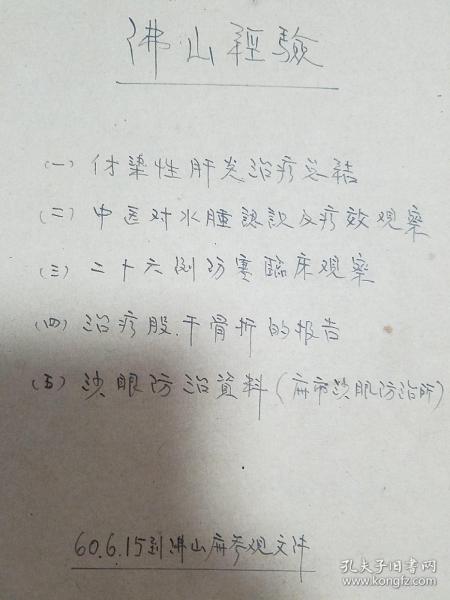 佛山經驗
(一) 付染性肝炎治疗总結
(二) 中医对水腫認识及疗效观察
(三) 二十六例伤寒臨床观察
(四) 治疗股.干骨折的报告
(五) 沙眼防治資料(麻市沙眼防治所)
60.6.15到佛山麻参观文件
孔夫子旧书网
www.kongfz.com